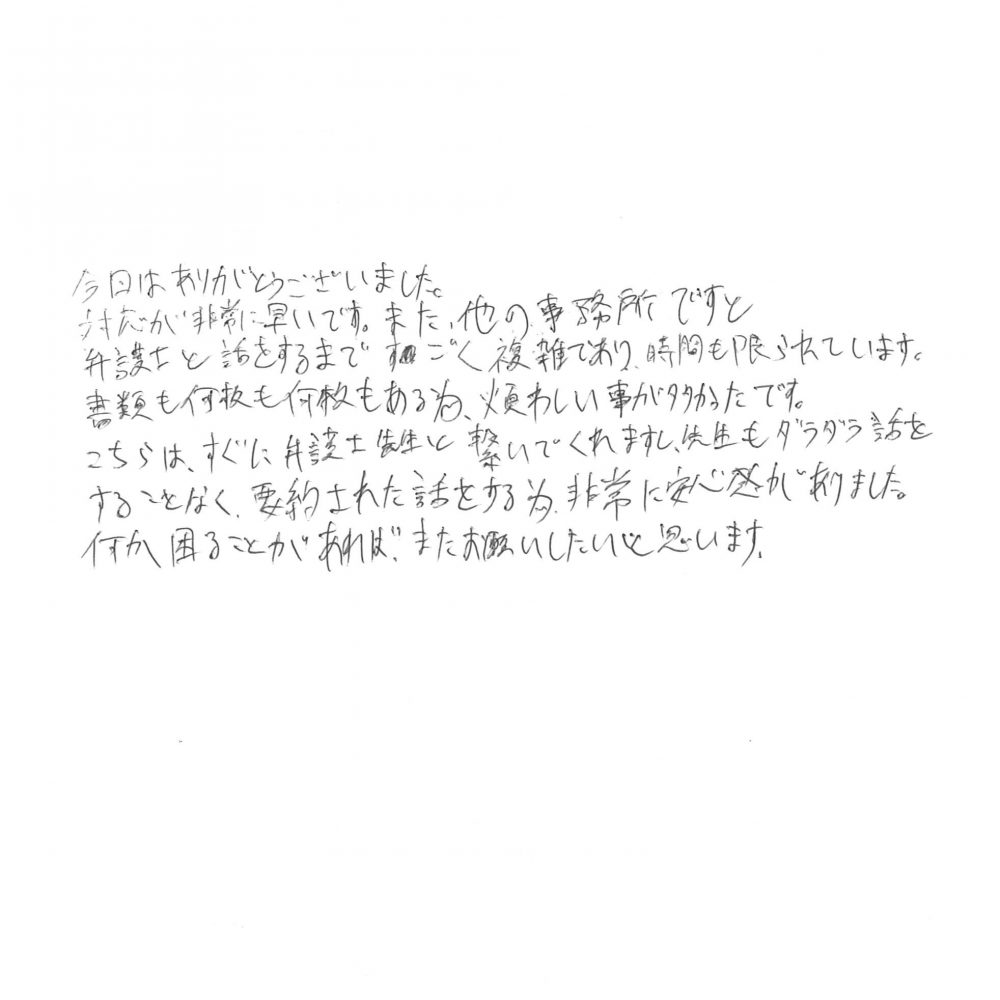 今日はありがとうございました。
対応が非常に早いです。また、他の事務所ですと
弁護士と話をするまですごく複雑であり、時間も限られています。
書類も何枚も何枚もある為、煩わしい事が多かったです。
こちらは、すぐに弁護士先生と繋いでくれますし、先生もダラダラ話を
することなく、要約された話をする為、非常に安心感がありました。
何か困ることがあれば、またお願いしたいと思います。